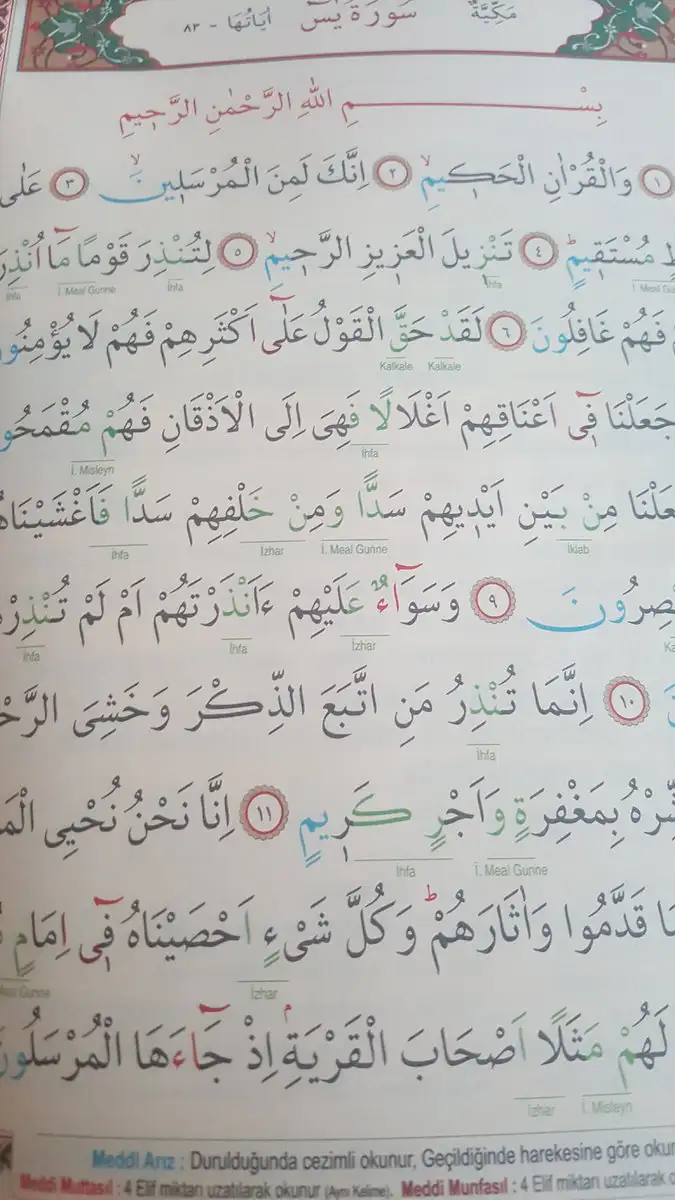 مَكِّيَّةٌ سُورَةُ يٰسٓ اٰيَاتُهَا - ٨٣
بِسْمِ اللّٰهِ الرَّحْمٰنِ الرَّحٖيمِ
١ وَالْقُرْاٰنِ الْحَكٖيمِۙ ٢ اِنَّكَ لَمِنَ الْمُرْسَلٖينَۙ ٣ عَلٰى
مُسْتَقٖيمٍۜ ٤ تَنْزٖيلَ الْعَزٖيزِ الرَّحٖيمِۙ ٥ لِتُنْذِرَ قَوْمًا مَٓا اُنْذِرَ
İ. Meal Gunne İhfa İhfa İ. Meal Gunne İhfa
فَهُمْ غَافِلُونَ ٦ لَقَدْ حَقَّ الْقَوْلُ عَلٰٓى اَكْثَرِهِمْ فَهُمْ لَا يُؤْمِنُو
Kalkale Kalkale
جَعَلْنَا فٖٓى اَعْنَاقِهِمْ اَغْلَالًا فَهِىَ اِلَى الْاَذْقَانِ فَهُمْ مُقْمَحُو
İhfa İ. Misleyn
عَلْنَا مِنْ بَيْنِ اَيْدٖيهِمْ سَدًّا وَمِنْ خَلْفِهِمْ سَدًّا فَاَغْشَيْنَاهُ
İklab İ. Meal Gunne İzhar İhfa
صِرُونَ ٩ وَسَوَٓاءٌ عَلَيْهِمْ ءَاَنْذَرْتَهُمْ اَمْ لَمْ تُنْذِرْهُ
İzhar İhfa İhfa
١٠ اِنَّمَا تُنْذِرُ مَنِ اتَّبَعَ الذِّكْرَ وَخَشِىَ الرَّحْ
İhfa
شِّرْهُ بِمَغْفِرَةٍ وَاَجْرٍ كَرٖيمٍ ١١ اِنَّا نَحْنُ نُحْيِى الْمَ
İ. Meal Gunne İhfa
مَا قَدَّمُوا وَاٰثَارَهُمْۜ وَكُلَّ شَىْءٍ اَحْصَيْنَاهُ فٖٓى اِمَامٍ
İzhar Gunne
لَهُمْ مَثَلًا اَصْحَابَ الْقَرْيَةِۢ اِذْ جَٓاءَهَا الْمُرْسَلُونَ
İ. Misleyn İzhar
Meddi Arız : Durulduğunda cezimli okunur, Geçildiğinde harekesine göre okur
Meddi Muttasıl : 4 Elif miktarı uzatılarak okunur (Aynı Kelime). Meddi Munfasıl : 4 Elif miktarı uzatılarak